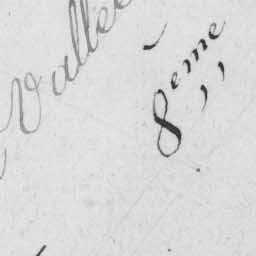 Vallée
8eme ,,